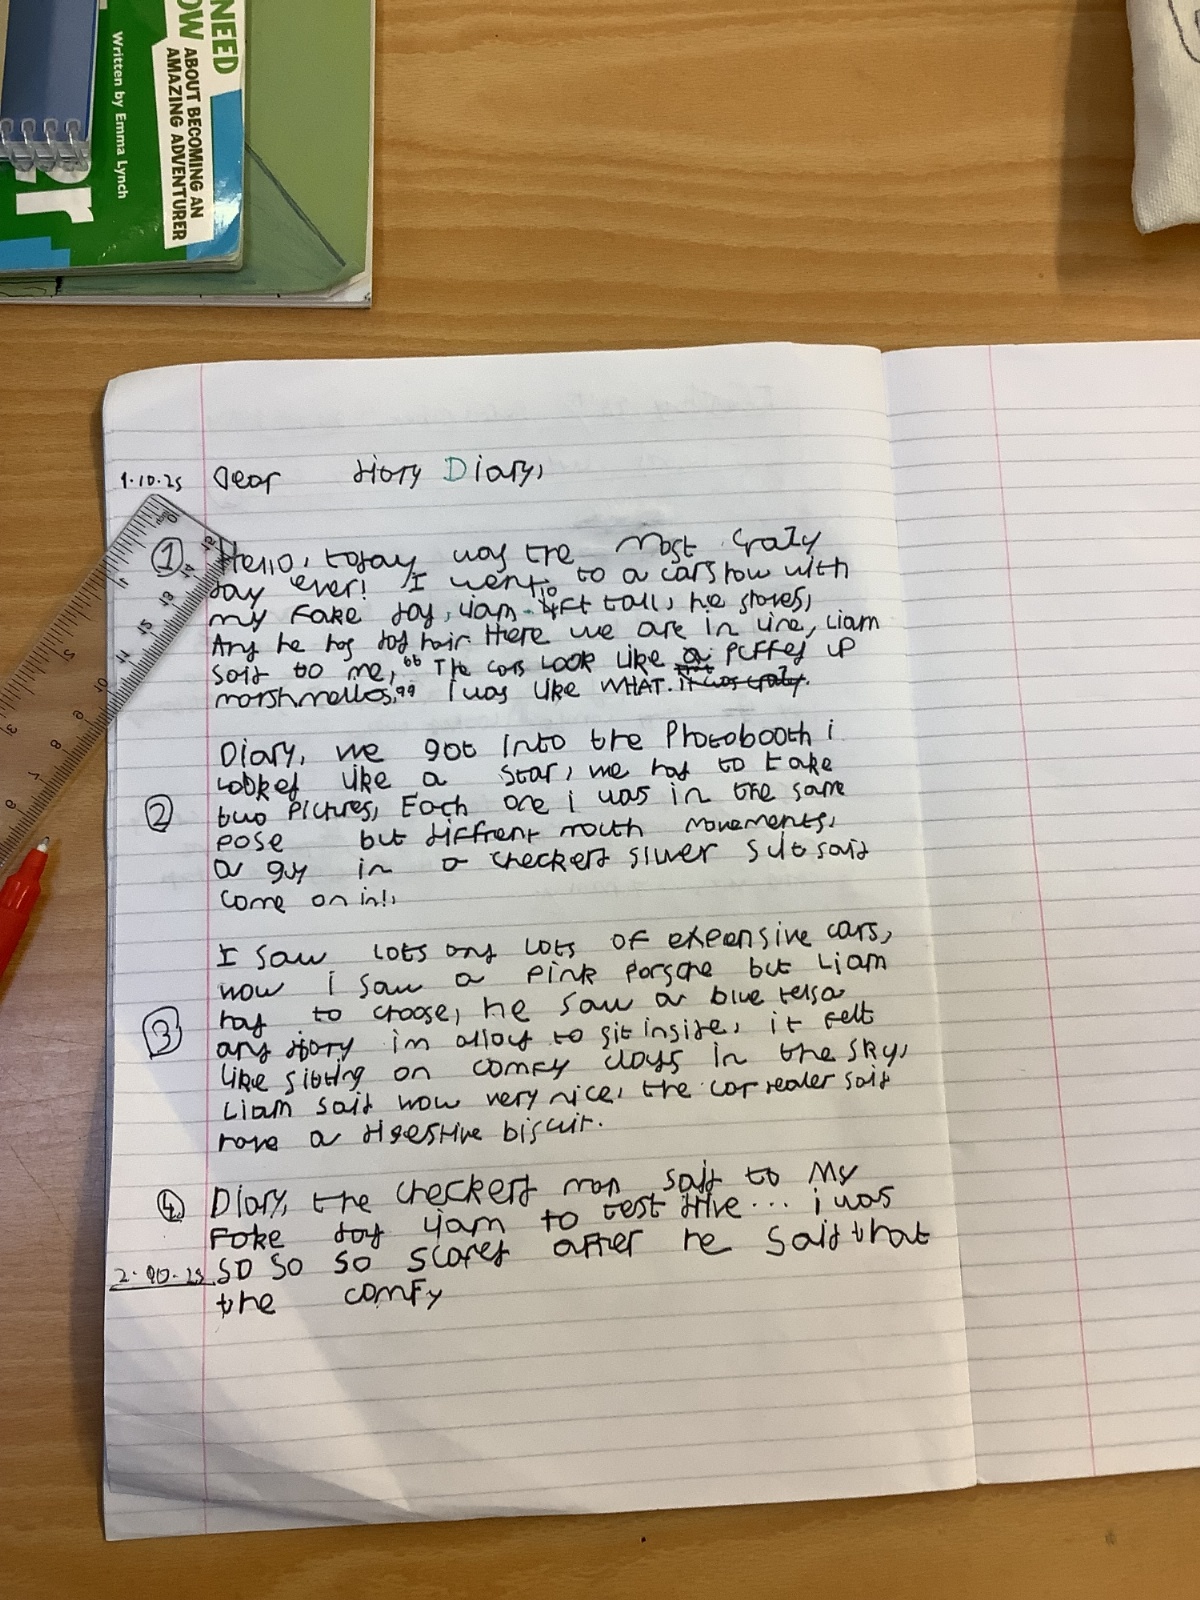 NEED
OW ABOUT BECOMING AN
AMAZING ADVENTURER
Written by Emma Lynch
er
1.10.25 Dear diary Diary,
① Hello, today was the most crazy
day ever! I went to a carshow with
my Fake dad, Liam 4ft tall, he
And he has dad hair. Here we are in line, Liam
said to me, "The cars LOOK Like a puffed up
marshmellos," I was like WHAT. it was crazy.
Diary, we got into the Photobooth i
Looked like a star, we had to take
② two pictures, Each one i was in the same
pose but diffrent mouth movements,
a guy in a checkerd silver suit said
come on in!,
I saw lots and lots of expensive cars,
wow i saw a pink porsche but Liam
③ had to choose, he saw a blue telsa
and diary im allowd to sit inside, it felt
like sitting on comfy clouds in the sky,
Liam said wow very nice, the car dealer said
have a digestive biscuit.
④ Diary, the checkerd man said to My
Fake dad Liam to test drive... i was
2.10.25 so so so scared after he said that
the comfy